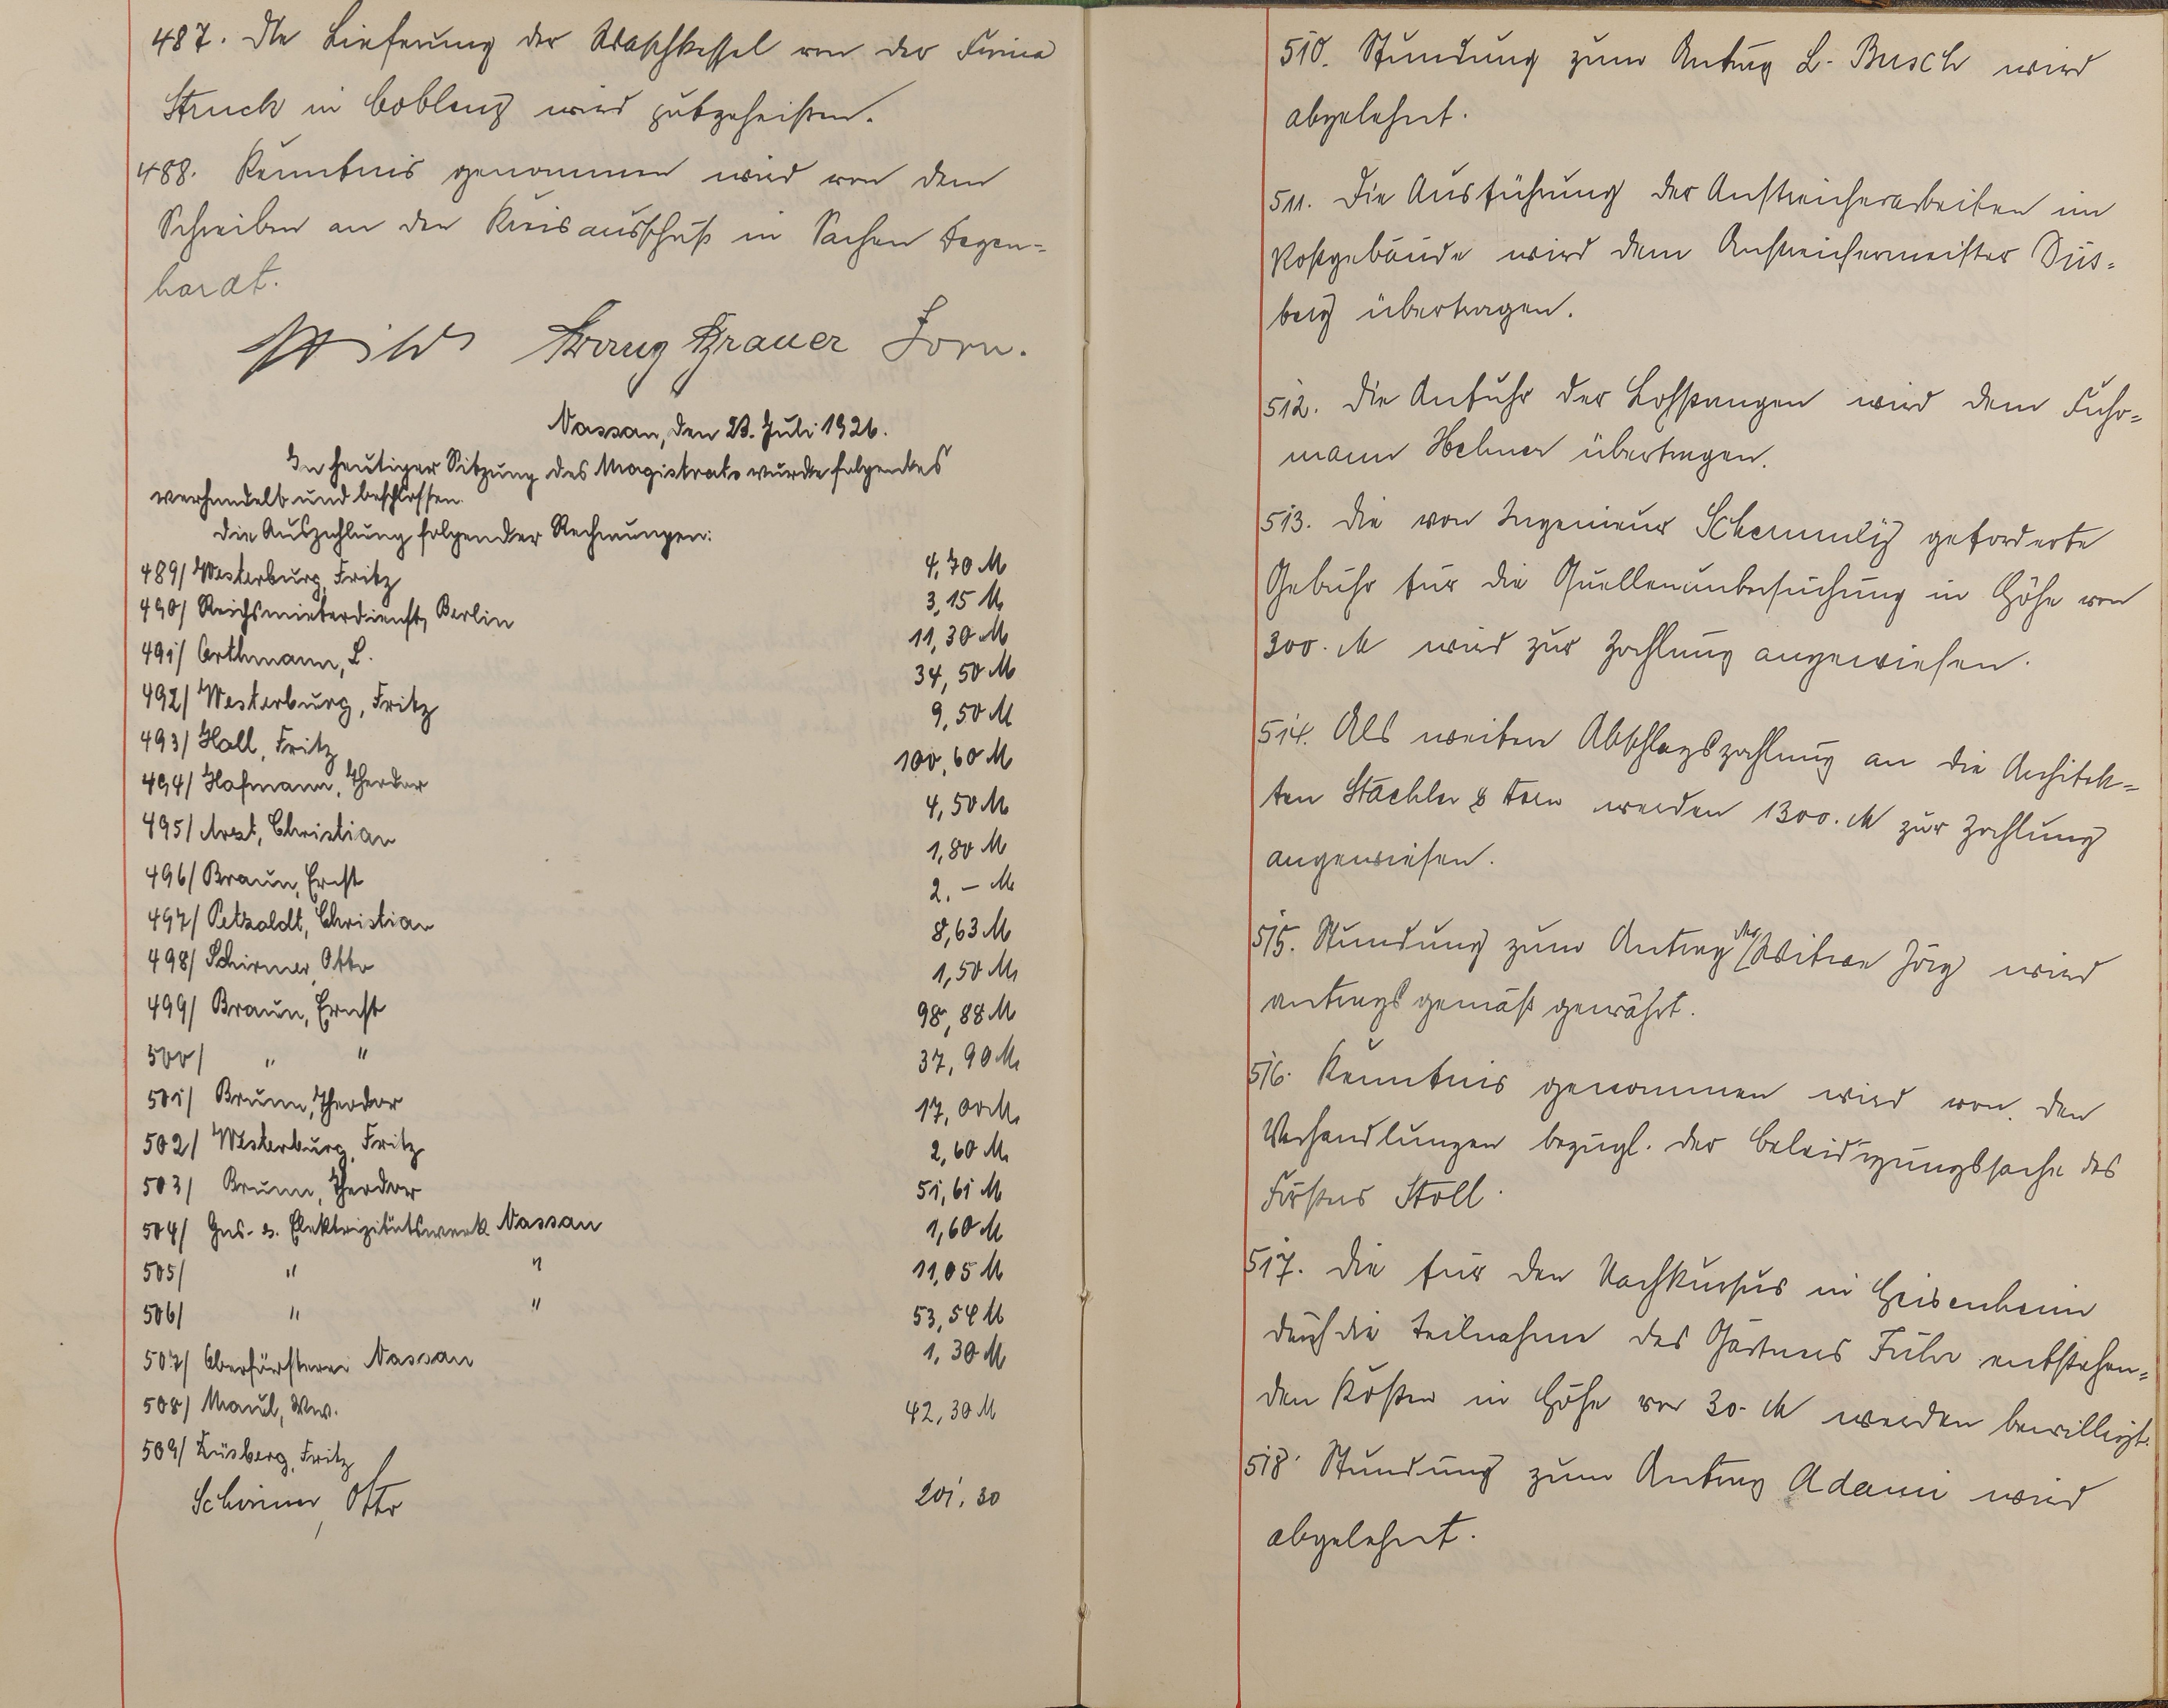 487. Die Lieferung der Waschkessel von der Firma
Struck in Coblenz wird gutgeheißen.
488. Kenntnis genommen wird von dem
Schreiben an den Kreisausschuß in Sachen Degen=
hardt.
Franz Brauer Zorn.
Nassau, den 23. Juli 1926.
In heutiger Sitzung des Magistrats wurde folgendes
verhandelt und beschlossen.
Die Auszahlung folgender Rechnungen:
489/ Westerburg, Fritz 4,70 M
490/ Reichsmieterdienst, Berlin 3,15 M
491/ Orthmann, L. 11,30 M
492/ Westerburg, Fritz 34,50 M
493/ Holl, Fritz 9,50 M
494/ Hofmann, Theodor 100,60 M
495/ Arzt, Christian 4,50 M
496/ Braun, Ernst 1,80 M
497/ Petzoldt, Christian 2.– M
498/ Schirmer, Otto 8,63 M
499/ Braun, Ernst 1,50 M
500/ " " 98,88 M
501/ Brunn, Theodor 37,90 M
502/ Westerburg, Fritz 17,00 M
503/ Brunn, Theodor 2,60 M
504/ Gas- u. Elektrizitätswerk Nassau 51,61 M
505/ " " 1,60 M
506/ " " 11,05 M
507/ Oberförsterei Nassau 53,54 M
508/ Maul, Ww. 1,30 M
509/ Düsberg, Fritz 42,30 M
Schirmer, Otto 201,30
510. Stundung zum Antrag L. Busch wird
abgelehnt.
511. Die Ausführung der Anstreicherarbeiten im
Postgebäude wird dem Anstreichermeister Düs=
berg übertragen.
512. Die Anfuhr der Lohstangen wird dem Fuhr=
mann Helmer übertragen.
513. Die von Ingenieur Schermuly geforderte
Gebühr für die Quellenuntersuchung in Höhe von
300. M wird zur Zahlung angewiesen.
514. Als weitere Abschlagszahlung an die Architek=
ten Staehler & Horn werden 1300. M zur Zahlung
angewiesen.
515. Stundung zum Antrag der Witwe Jörg wird
antragsgemäß gewährt.
516. Kenntnis genommen wird von den
Verhandlungen bezügl. der Beleidigungssache des
Försters Stoll.
517. Die für den Nachkursus in Geisenheim
durch die Teilnahme des Gärtners Führ entstehen=
den Kosten in Höhe von 30. M werden bewilligt.
518. Stundung zum Antrag Adami wird
abgelehnt.